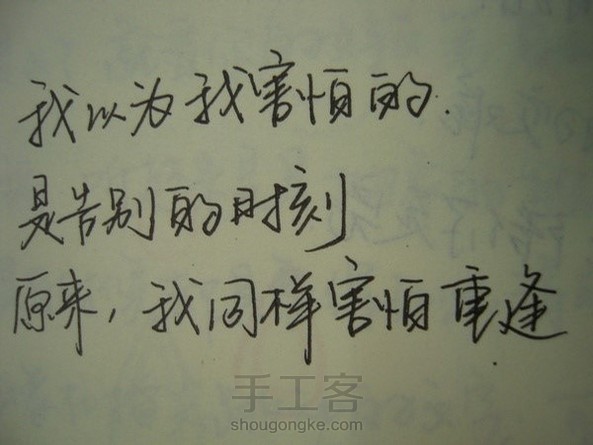 我以为我害怕的.
是告别的时刻
原来,我同样害怕重逢
手工客
shougongke.com